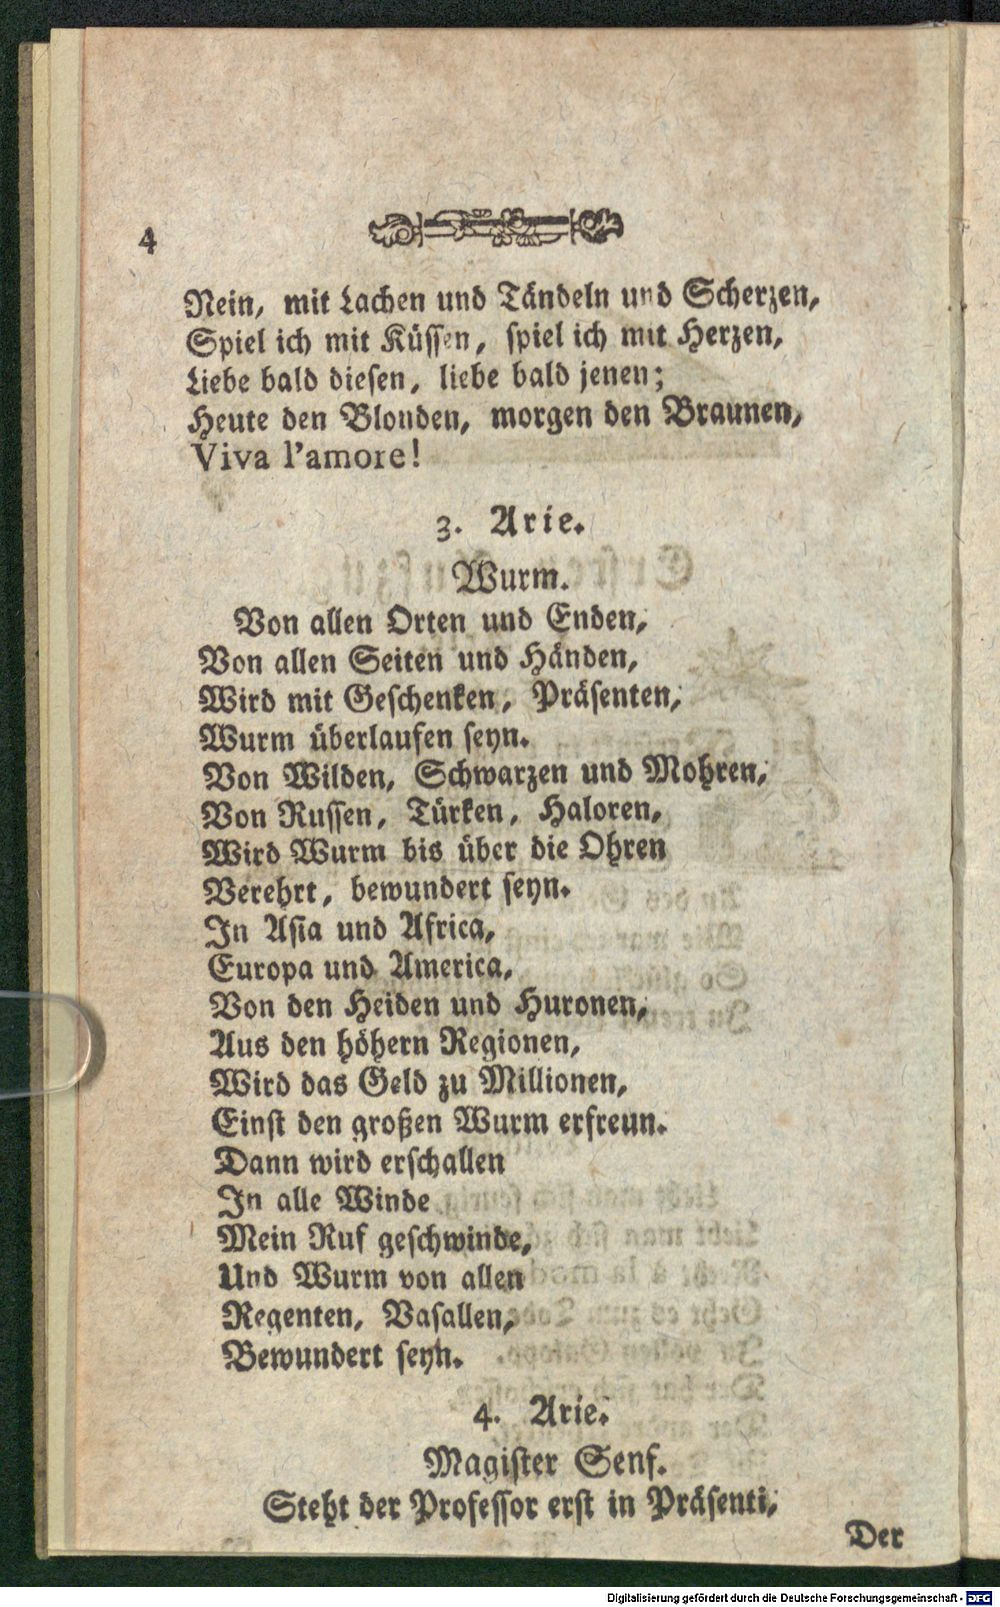 4
Nein, mit Lachen und Tändeln und Scherzen,
Spiel ich mit Küssen, spiel ich mit Herzen,
Liebe bald diesen, liebe bald jenen;
Heute den Blonden, morgen den Braunen,
Viva l'amore!
3. Arie.
Wurm.
Von allen Orten und Enden,
Von allen Seiten und Händen,
Wird mit Geschenken, Präsenten,
Wurm überlaufen seyn.
Von Wilden, Schwarzen und Mohren,
Von Russen, Türken, Haloren,
Wird Wurm bis über die Ohren
Verehrt, bewundert seyn.
In Asia und Africa,
Europa und America,
Von den Heiden und Huronen,
Aus den höhern Regionen,
Wird das Geld zu Millionen,
Einst den großen Wurm erfreun.
Dann wird erschallen
In alle Winde
Mein Ruf geschwinde,
Und Wurm von allen
Regenten, Vasallen,
Bewundert seyn.
4. Arie.
Magister Senf.
Steht der Professor erst in Präsenti,
Der
Digitalisierung gefördert durch die Deutsche Forschungsgemeinschaft - DFG